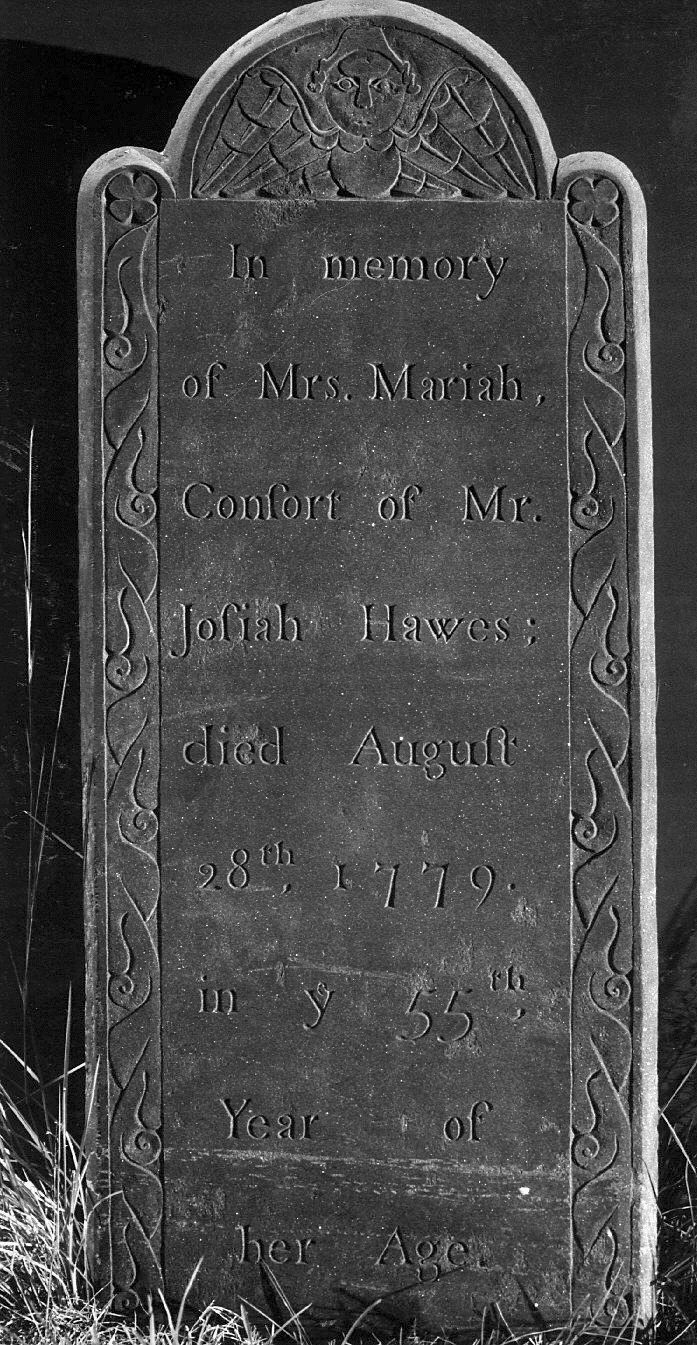 In memory
of Mrs. Mariah,
Conſort of Mr.
Joſiah Hawes;
died Auguſt
28th, 1779.
in yͤ 55th,
Year of
her Age.